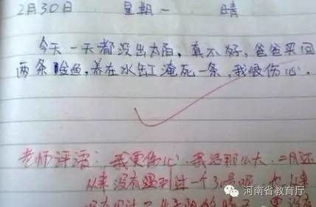 2月30日 星期一 晴
今天一天都没出太阳,真不好,爸爸买回
两条金鱼,养在水缸淹死一条,我很伤心。
老师评语:我更伤心,我活那么大,二月还
从来没有遇到过一个30号呢
河南省教育厅